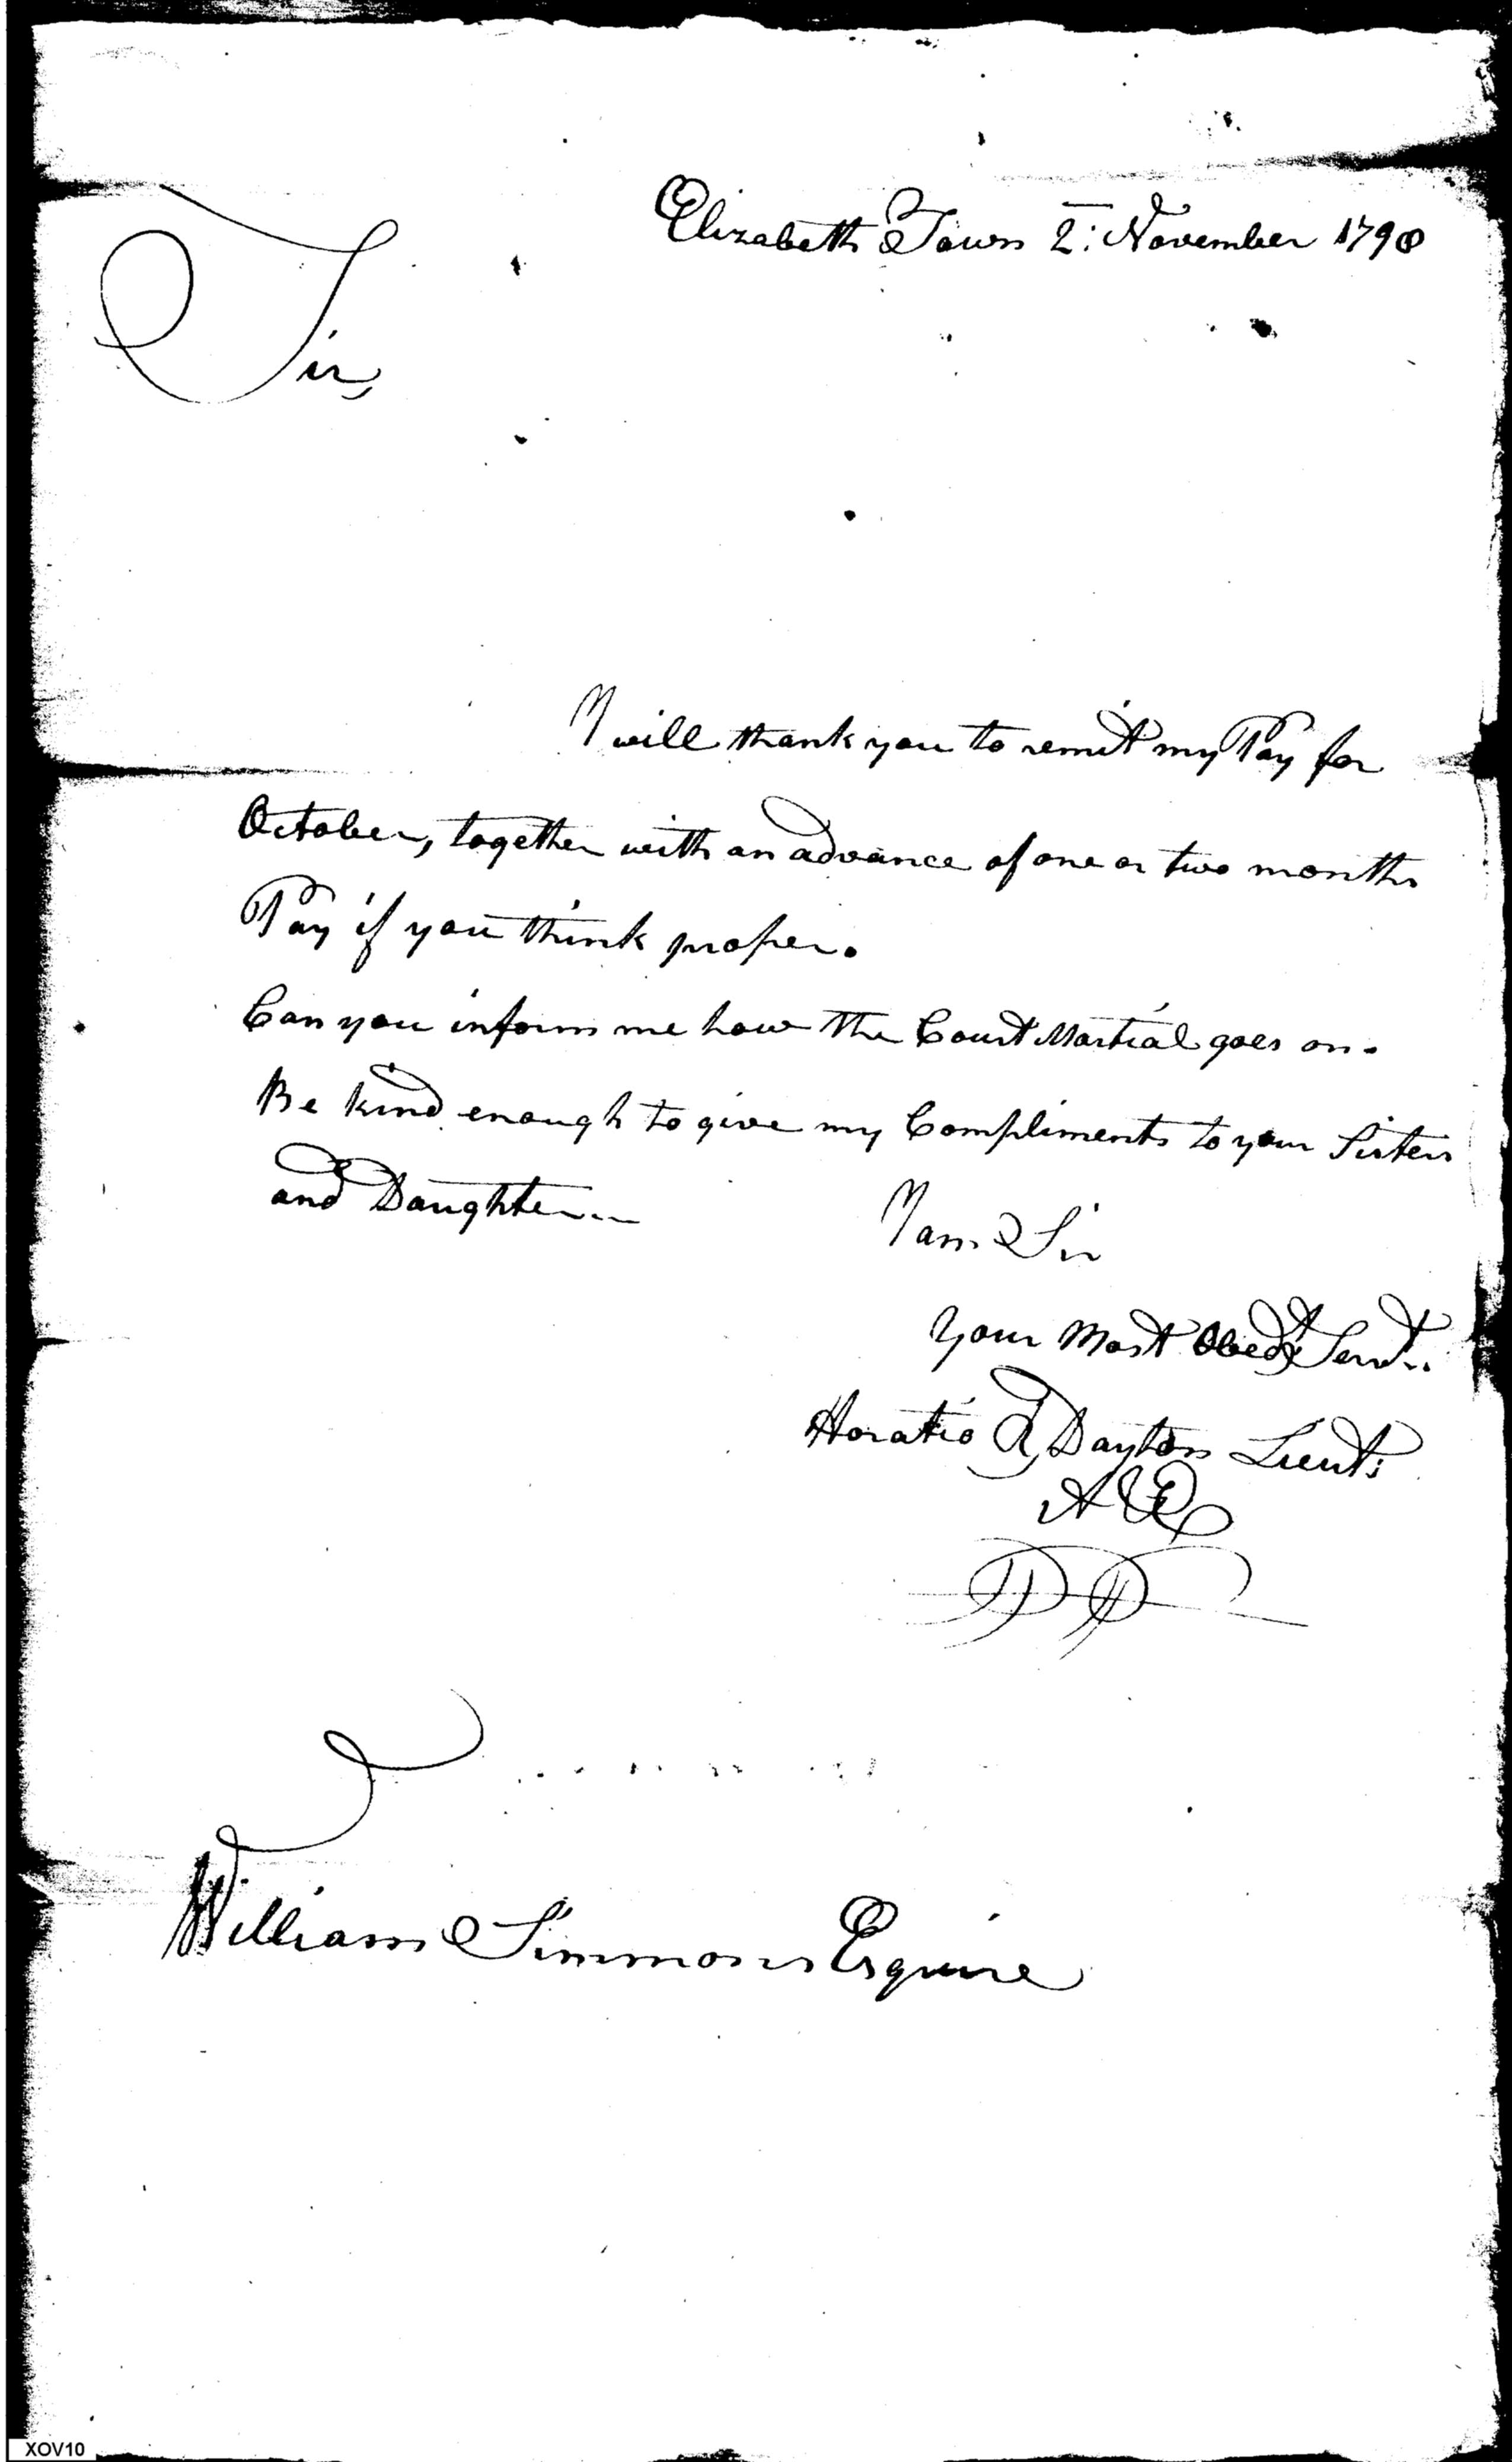 Elizabeth Town 2: November 1798
Sir,
I will thank you to remit my Pay for
October, together with an advance of one or two months
Pay if you think proper.
Can you inform me how the Court Martial goes on.
Be kind enough to give my Compliments to your Sisters
and Daughter
I am Sir
Your Most Obedt Servt..
Horatio R Dayton Lieut:
William Simmons Esquire
XOV10